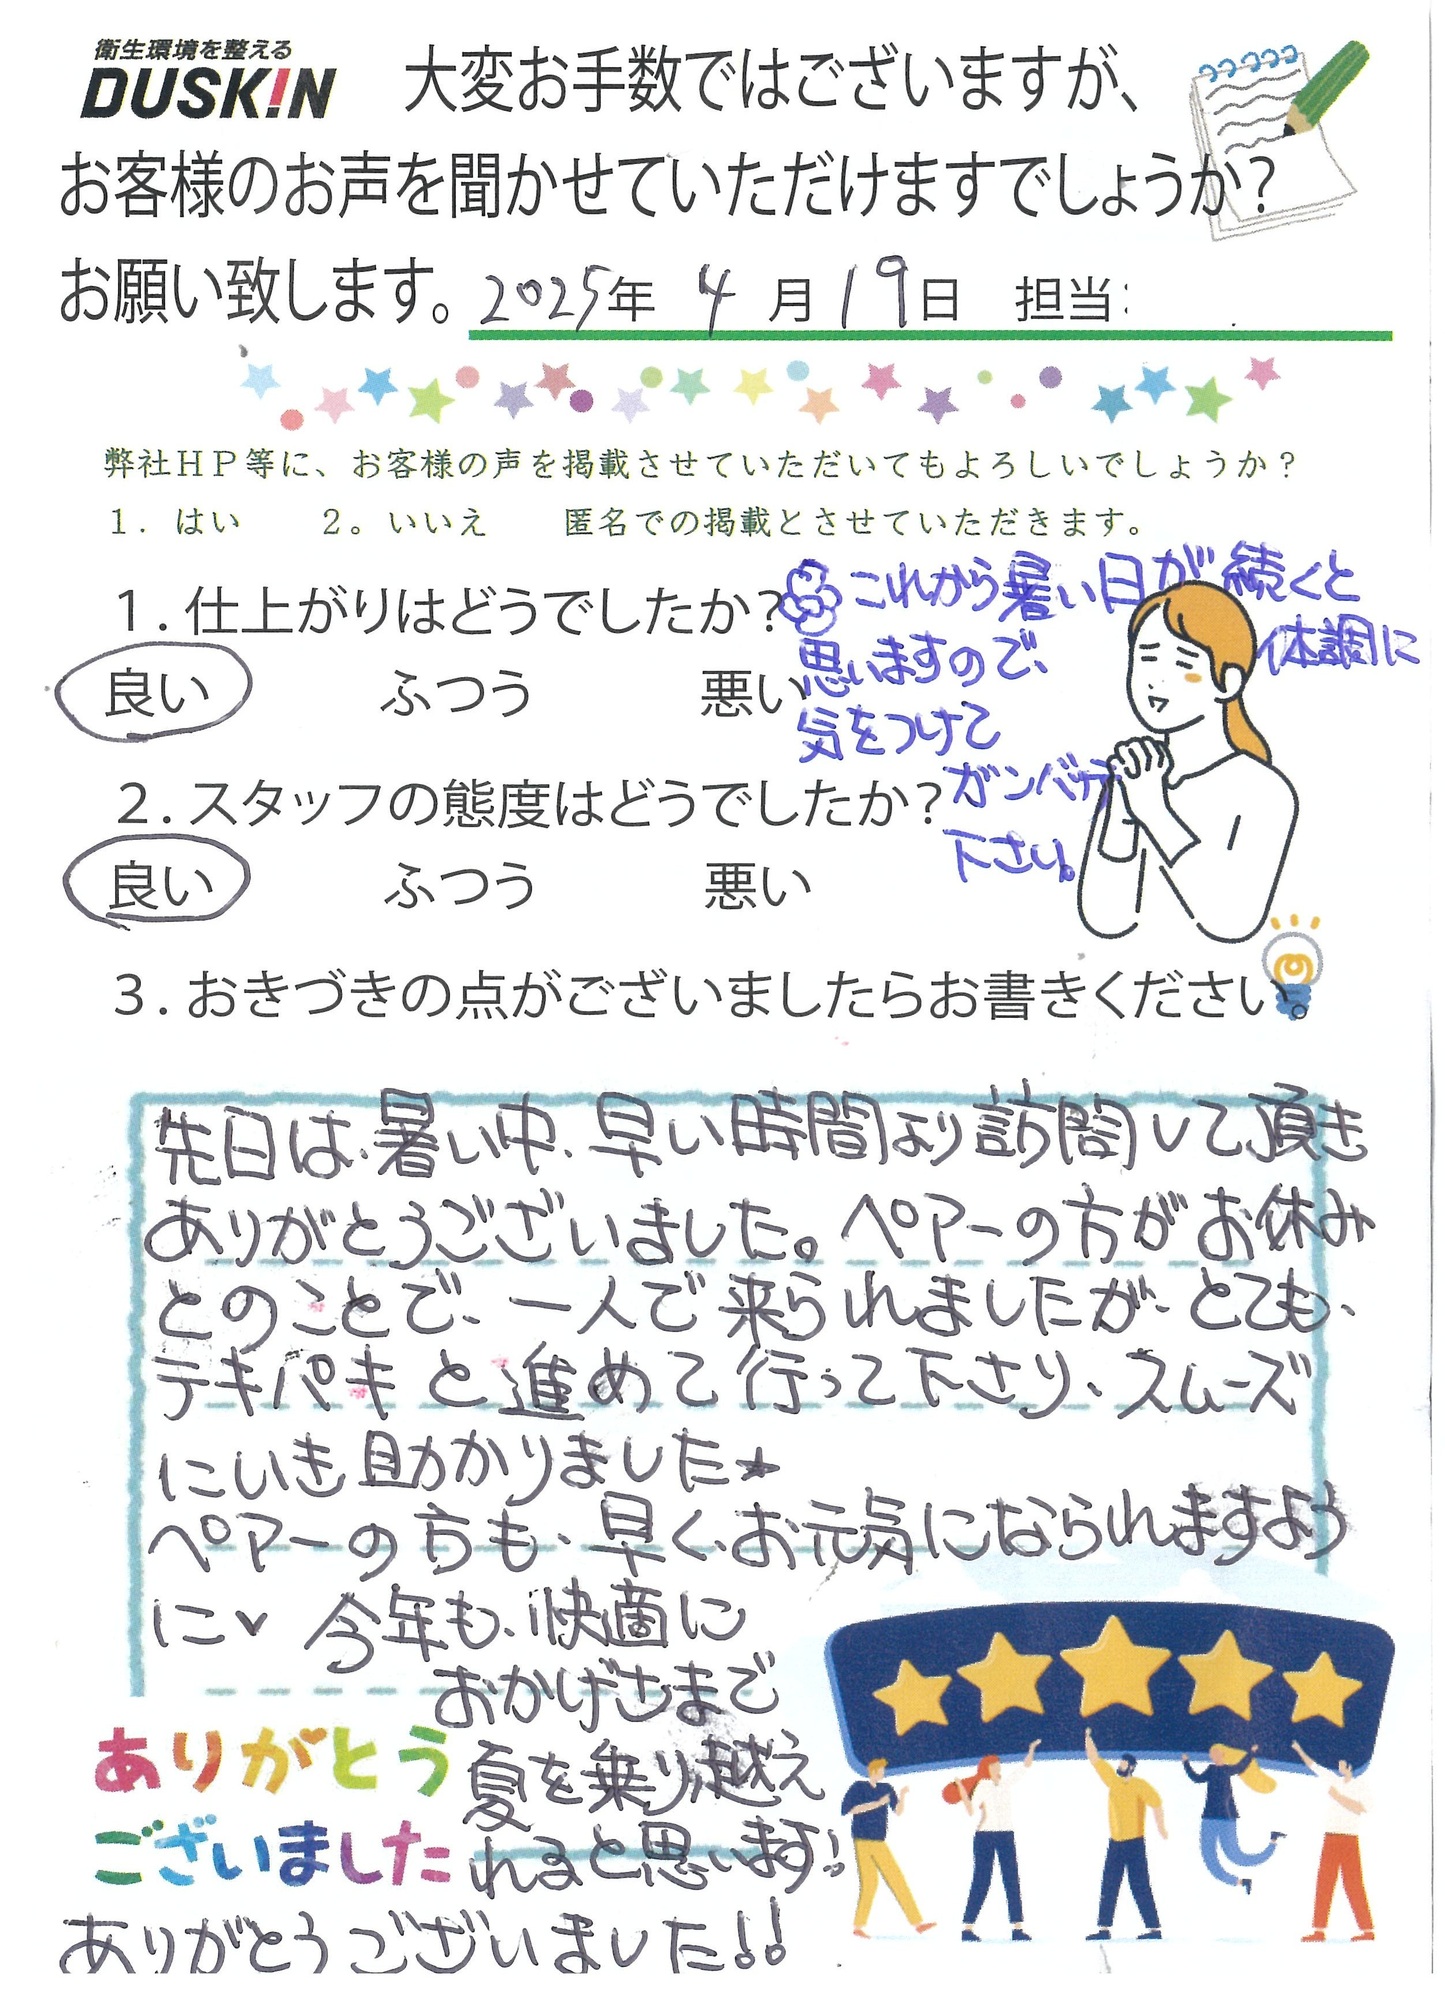 衛生環境を整える
DUSKIN
大変お手数ではございますが、
お客様のお声を聞かせていただけますでしょうか？
お願い致します。 2025年 4月19日 担当:
弊社ＨＰ等に、お客様の声を掲載させていただいてもよろしいでしょうか？
１．はい ２。いいえ 匿名での掲載とさせていただきます。
１．仕上がりはどうでしたか？
良い ふつう 悪い
これから暑い日が続くと
思いますので、体調に
気をつけて
ガンバッテ
下さい。
２．スタッフの態度はどうでしたか？
良い ふつう 悪い
３．おきづきの点がございましたらお書きください。
先日は、暑い中、早い時間より訪問して頂き
ありがとうございました。ペアーの方がお休み
とのことで、一人で来られましたが、とても、
テキパキと進めて行って下さり、スムーズ
にいき助かりました★
ペアーの方も、早くお元気になられますよう
に♥ 今年も、快適に
おかげさまで
夏を乗り越え
れると思います!
ありがとうございました!!
ありがとう
ございました